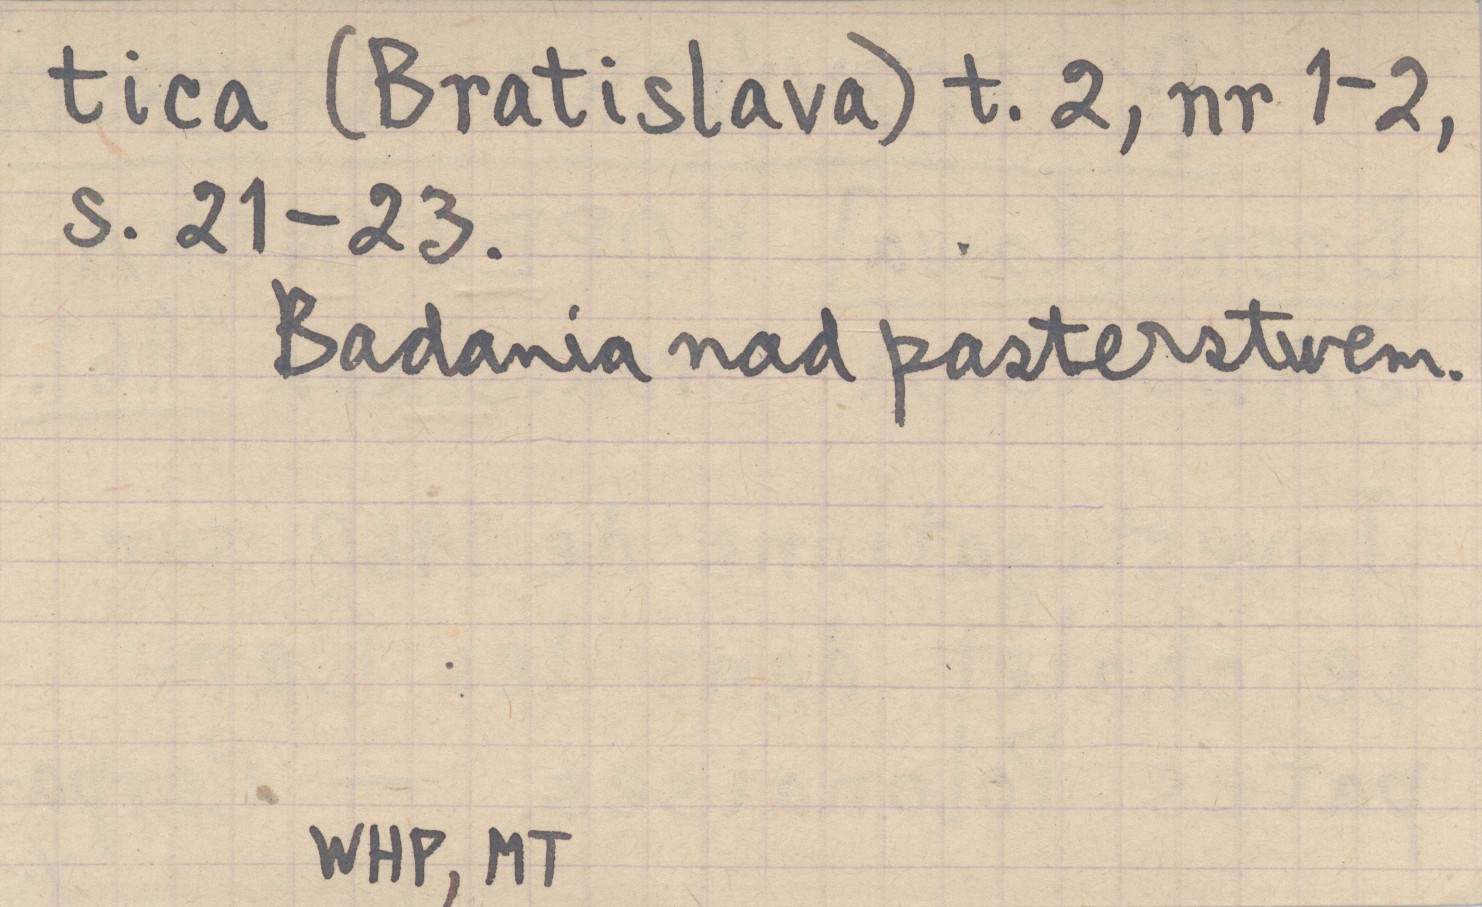 tica (Bratislava) t. 2, nr 1-2,
s. 21-23.
Badania nad pasterstwem.
WHP, MT